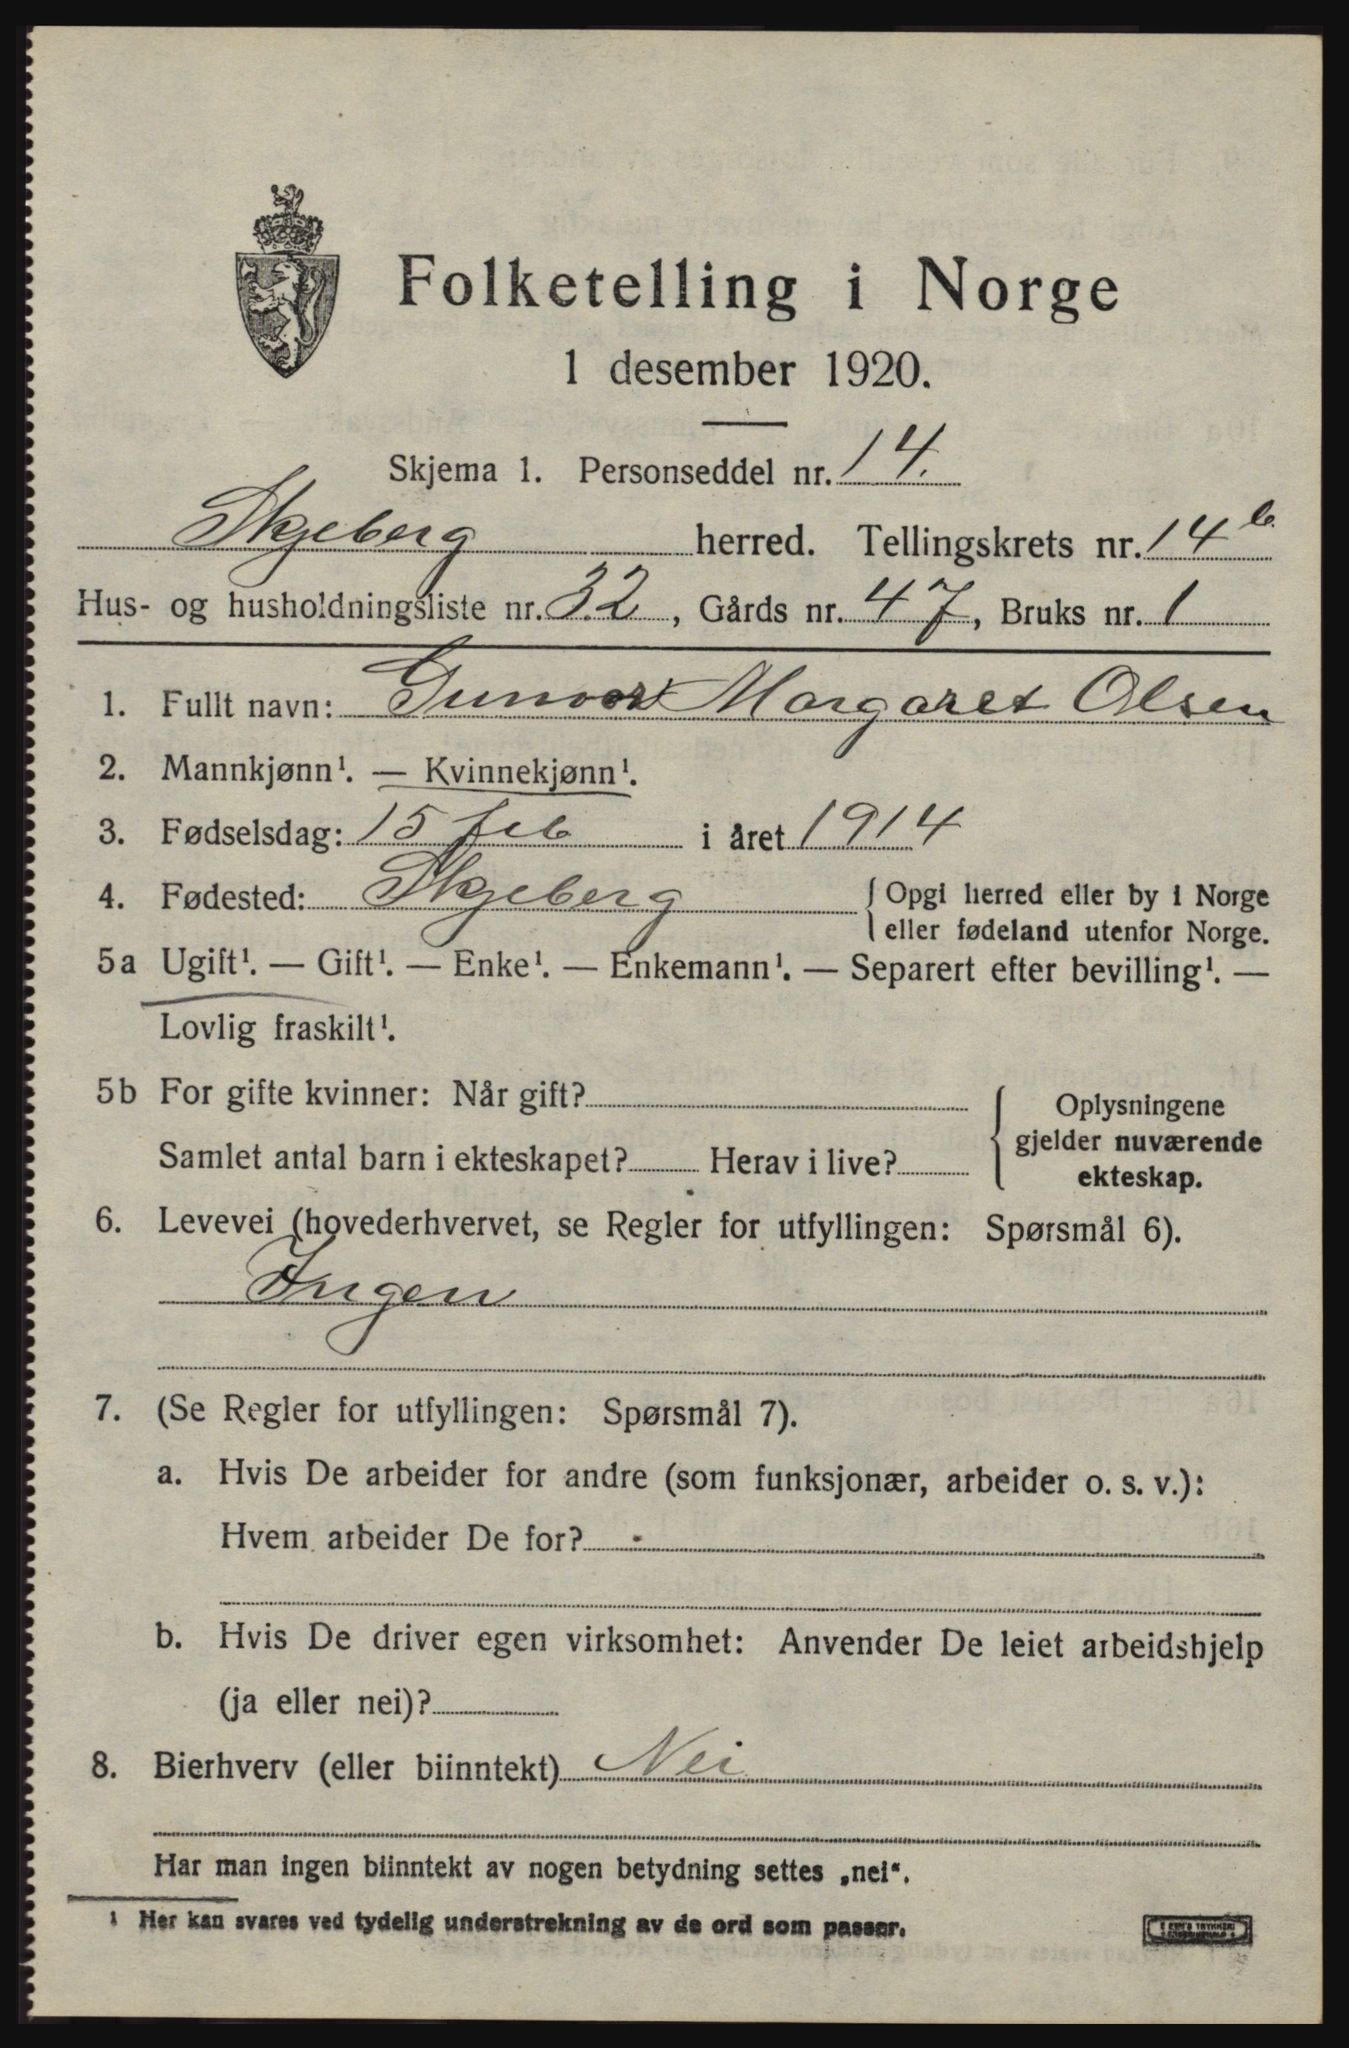 Folketelling i Norge
1 desember 1920.
Skjema 1. Personseddel nr. 14.
Skjeberg herred. Tellingskrets nr. 14 b.
Hus- og husholdningsliste nr. 32, Gårds nr. 47, Bruks nr. 1
1. Fullt navn: Gunvor Margaret Olsen
2. Mannkjønn¹. — Kvinnekjønn¹.
3. Fødselsdag: 15 feb i året 1914
4. Fødested: Skjeberg { Opgi herred eller by i Norge
eller fødeland utenfor Norge.
5a Ugift¹. — Gift¹. — Enke¹. — Enkemann¹. — Separert efter bevilling¹. —
Lovlig fraskilt¹.
5b For gifte kvinner: Når gift?
Samlet antal barn i ekteskapet? Herav i live?
{ Oplysningene
gjelder nuværende
ekteskap.
6. Levevei (hovederhvervet, se Regler for utfyllingen: Spørsmål 6).
Ingen
7. (Se Regler for utfyllingen: Spørsmål 7).
a. Hvis De arbeider for andre (som funksjonær, arbeider o. s. v.):
Hvem arbeider De for?
b. Hvis De driver egen virksomhet: Anvender De leiet arbeidshjelp
(ja eller nei)?
8. Bierhverv (eller biinntekt) Nei
Har man ingen biinntekt av nogen betydning settes „nei“.
¹ Her kan svares ved tydelig understrekning av de ord som passer.